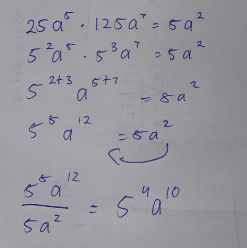 25a⁵ · 125a⁷ = 5a²
5²a⁵ · 5³a⁷ = 5a²
5²⁺³ a⁵⁺⁷ = 5a²
5⁵ a¹² = 5a²
5⁵a¹² / 5a² = 5⁴a¹⁰